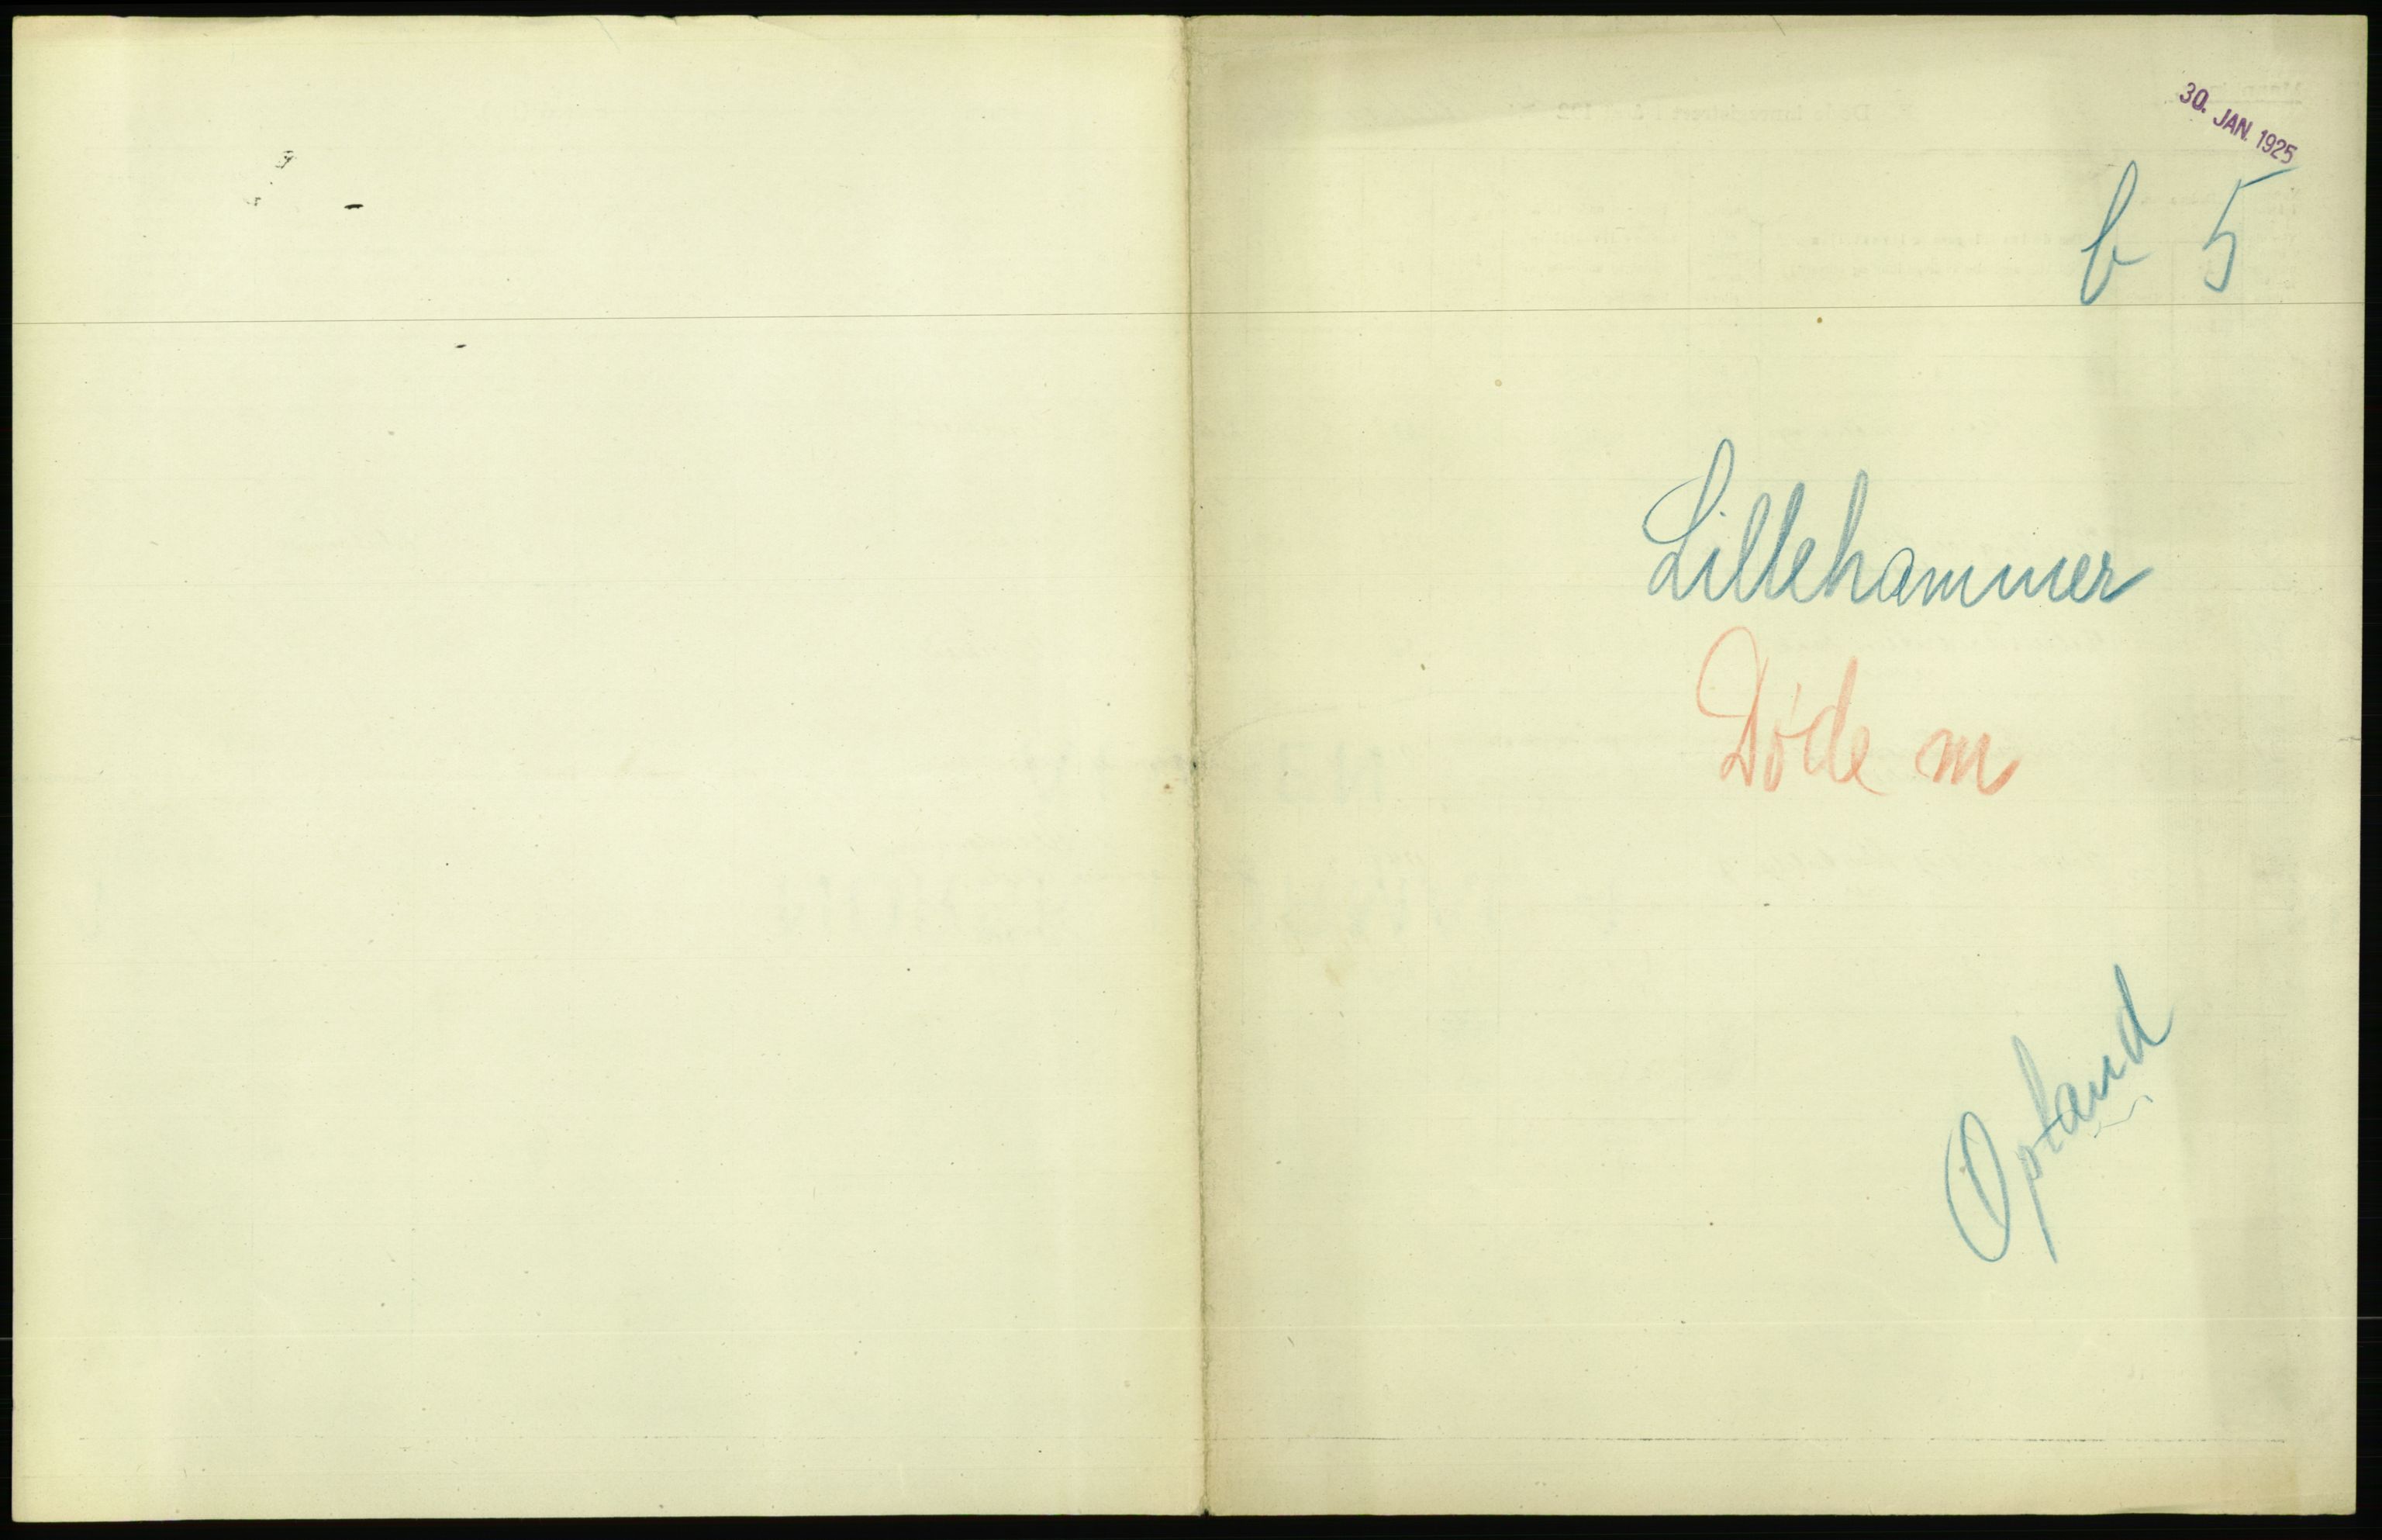 30. JAN. 1925
b 5
Lillehammer
Døde m
Opland